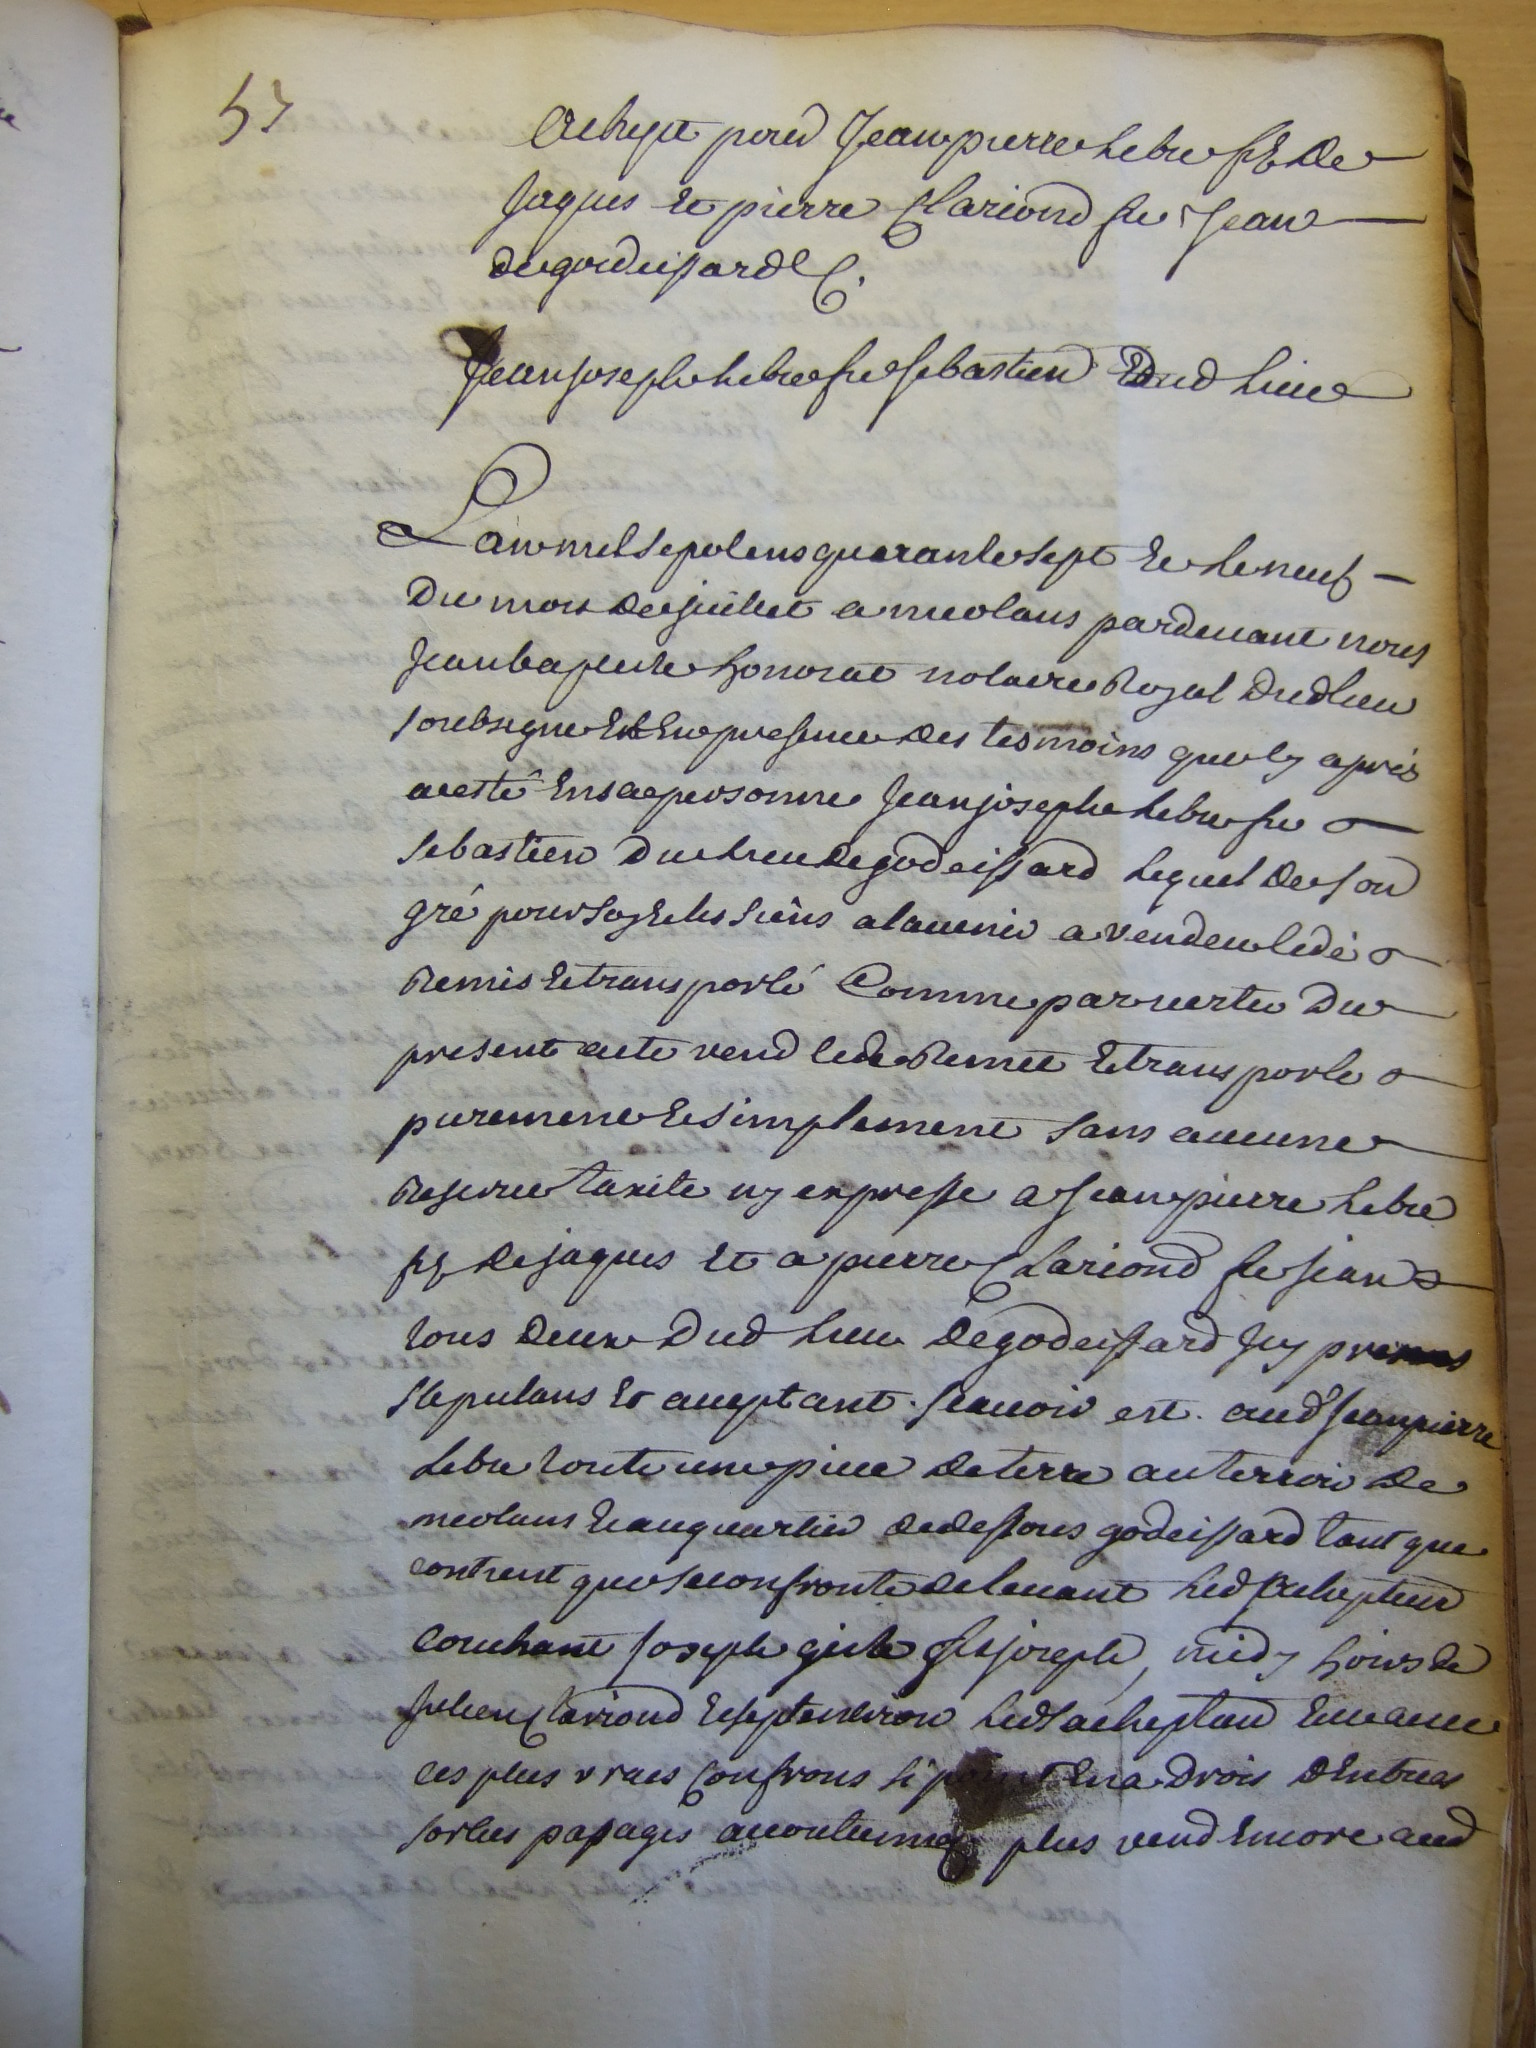 53
Achept pour Jean pierre Lebre fils de
Jaques et pierre Clariond feu Jean
de godeissard C.
Jean joseph Lebre feu sebastien dud Lieu
L'an mil sept cens quarante sept et le neuf
du mois de juillet a meolans pardevant nous
Jean baptiste honorat notaire Royal dud lieu
soubsigne et en presence des tesmoins que cy apres
a esté en sa personne Jean joseph Lebre feu
sebastien du Lieu de godeissard lequel de son
gré pour soy et les siens a l'avenir a vendeu cedé
Remis et transporté Comme par vertu du
present acte vend cede Remet et transporte
purement et simplement sans aucune
Reserve taxite ny expresse a Jean pierre Lebre
fils de jaques et a pierre Clariond feu jean
tous deux dud Lieu de godeissard Jcy
stipulans et aceptant. scavoir est. aud Jean pierre
Lebre toute une piece de terre au terroir de
meolans et au quartier de dessous godeissard tant que
contient que se confronte de levant led achepteur
couchant Joseph feu joseph, midy hoirs de
Julien Clariond et septentrion led achepteur et avec
ces plus vrais Confrons si point en a drois d'Entrées
sorties passages acoutumes plus vend encore aud